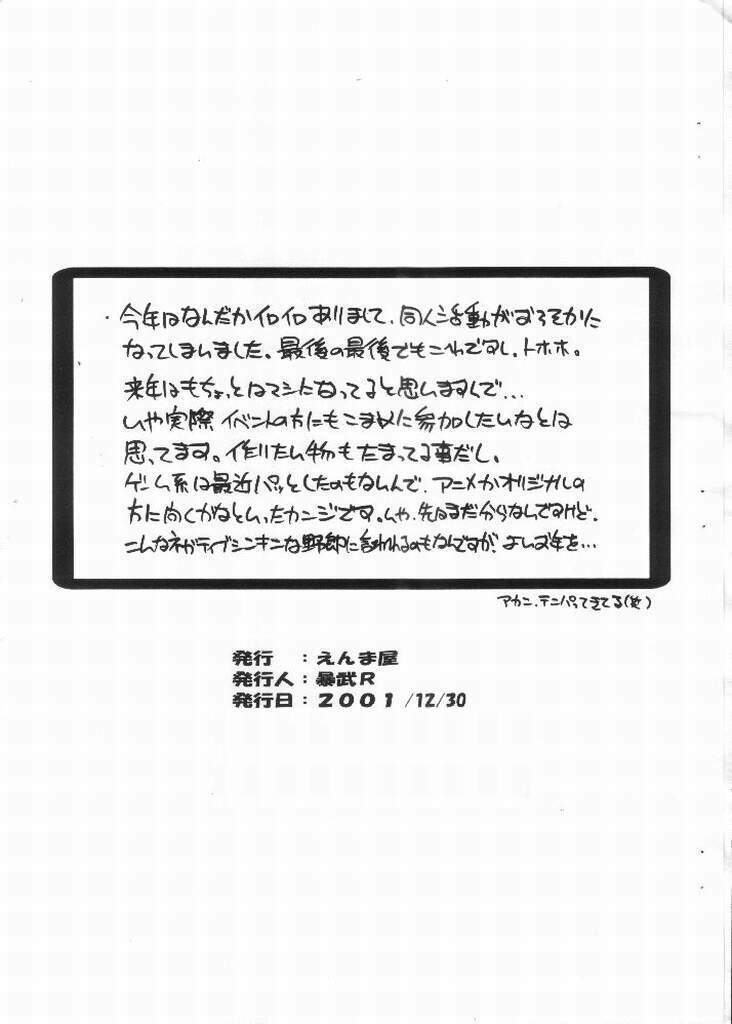 ・今年はなんだかイロイロありまして、同人活動がおろそかに
なってしまいました。最後の最後でもこれですし。トホホ。
来年はもちょっとはマシになってると思いますんで…
いや実際イベントの方にもこまめに参加したいなとは
思ってます。作りたい物もたまってる事だし。
ゲーム系は最近パッとしたのもないんで、アニメかオリジナルの
方に向くかなといったカンジです。いや、先はまだ分からないんですけど。
こんなネガティブシンキンな野郎に言われるのもなんですが、よいお年を…
アカン、テンパってきてる
発行　：えんま屋
発行人：暴武R
発行日：2001/12/30